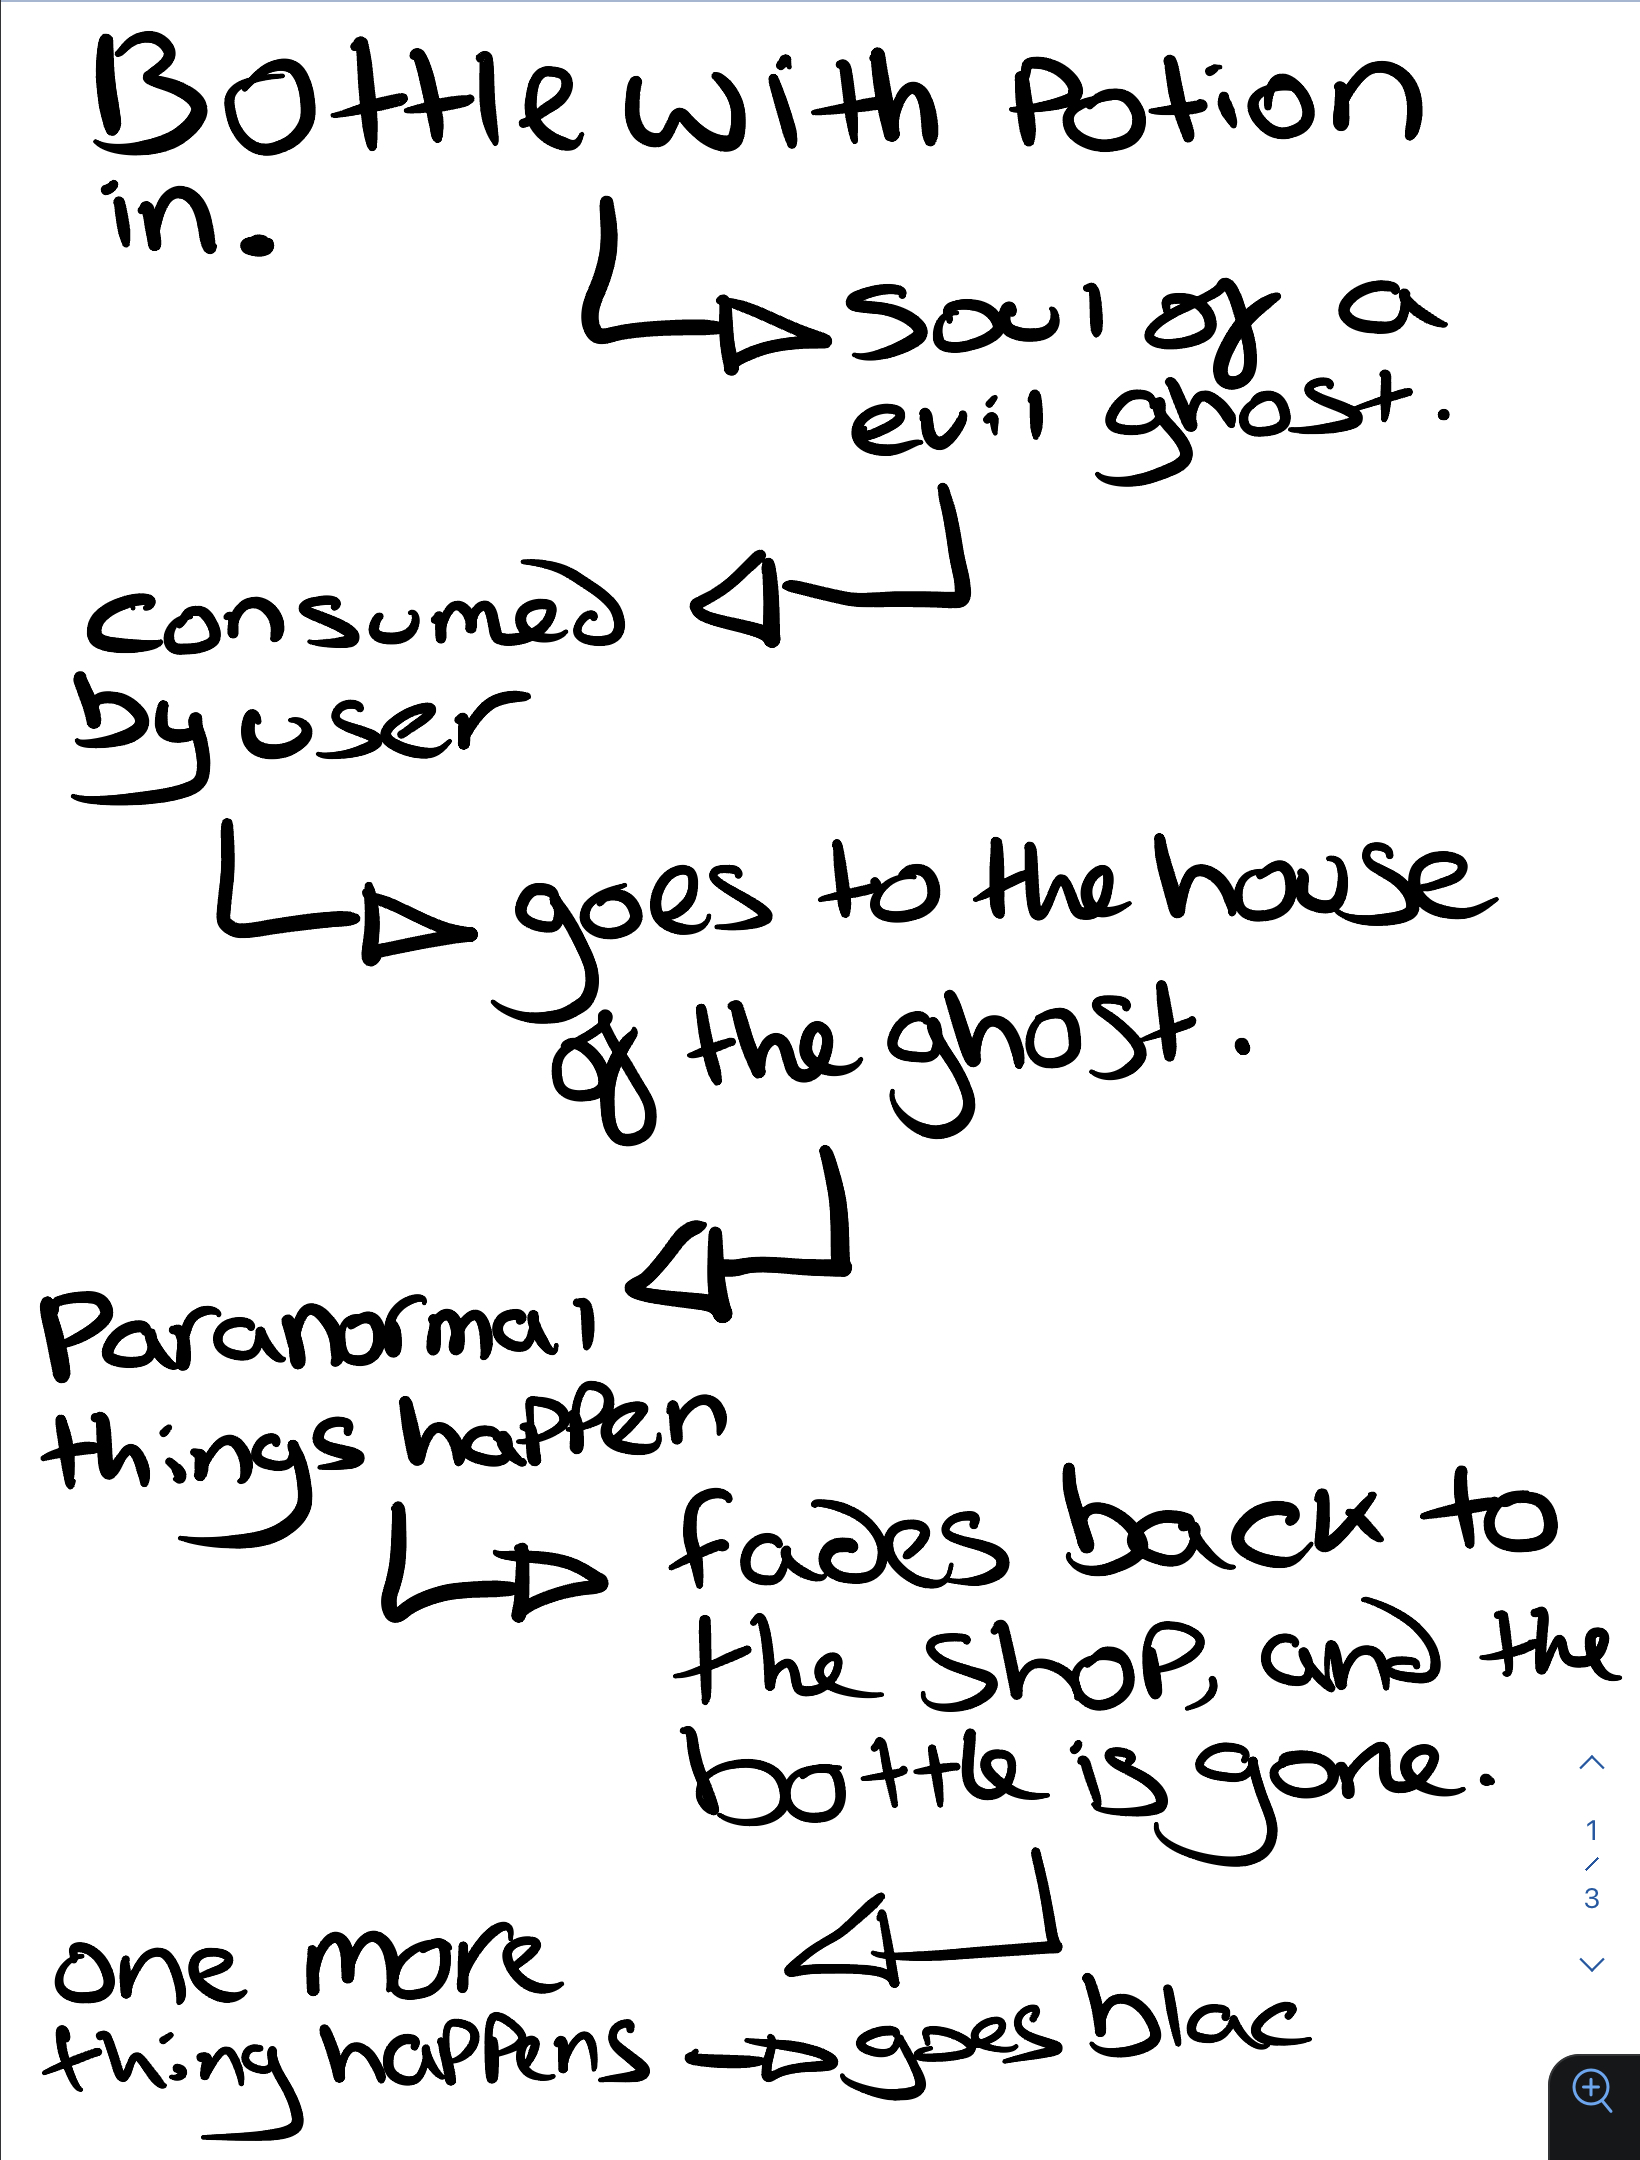 Bottle with Potion
in.
soul of a
evil ghost.
consumed
by user
goes to the house
of the ghost.
Paranormal
things happen
fades back to
the shop, and the
bottle is gone.
one more
thing happens → goes blac
1
/
3